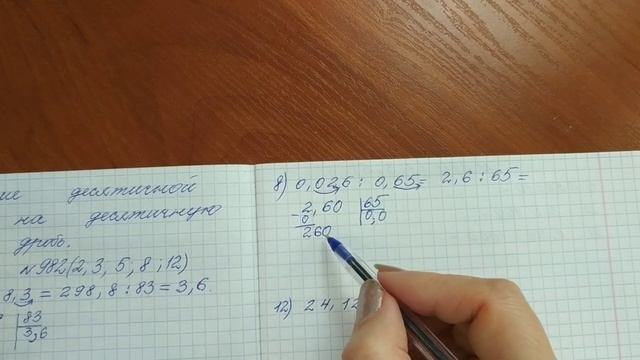 ие десятичной
на десятичную
дробь.
№982(2, 3, 5, 8; 12)
8,3 = 298,8 : 83 = 3,6.
83
3,6
8) 0,026 : 0,65 = 2,6 : 65 =
- 2,60 65
0 0,0
260
12) 24,12